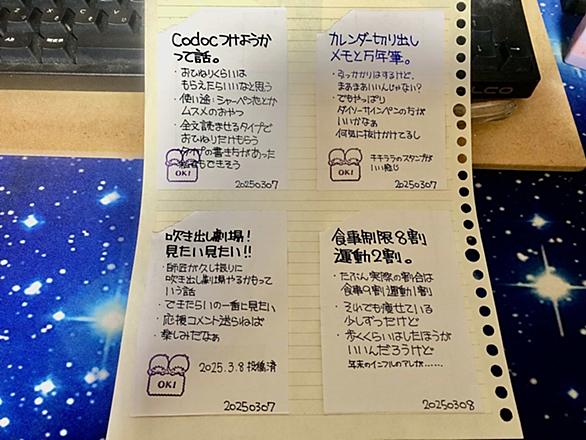 Codocつけようか
って話。
・おひねりくらいは
もらえたらいいなと思う
・使い途：シャーペン代とか
ムスメのおやつ
・全文読ませるタイプで
おひねりだけもらう
タイプの書き方があった
もできそう
OKI
20250307
カレンダー切り出し
メモと万年筆。
・引っかかりはするけど、
まあまあいいんじゃない？
・でもやっぱり
ダイソーサインペンの方が
いいかなぁ
何気に抜けかけてるし
キキララのスタンプが
いい感じ
OKI
20250307
吹き出し劇場！
見たい見たい!!
・師匠が久し振りに
吹き出し劇場やるかもって
いう話
・できたらいの一番に見たい
・応援コメント送らねば
・楽しみだなぁ
OKI
2025.3.8 投稿済
20250307
食事制限8割
運動2割。
・たぶん実際の割合は
食事9割運動1割
・それでも痩せている
少しずつだけど
・歩くくらいはしたほうが
いいんだろうけど
年末のインフルのアレが……
20250308